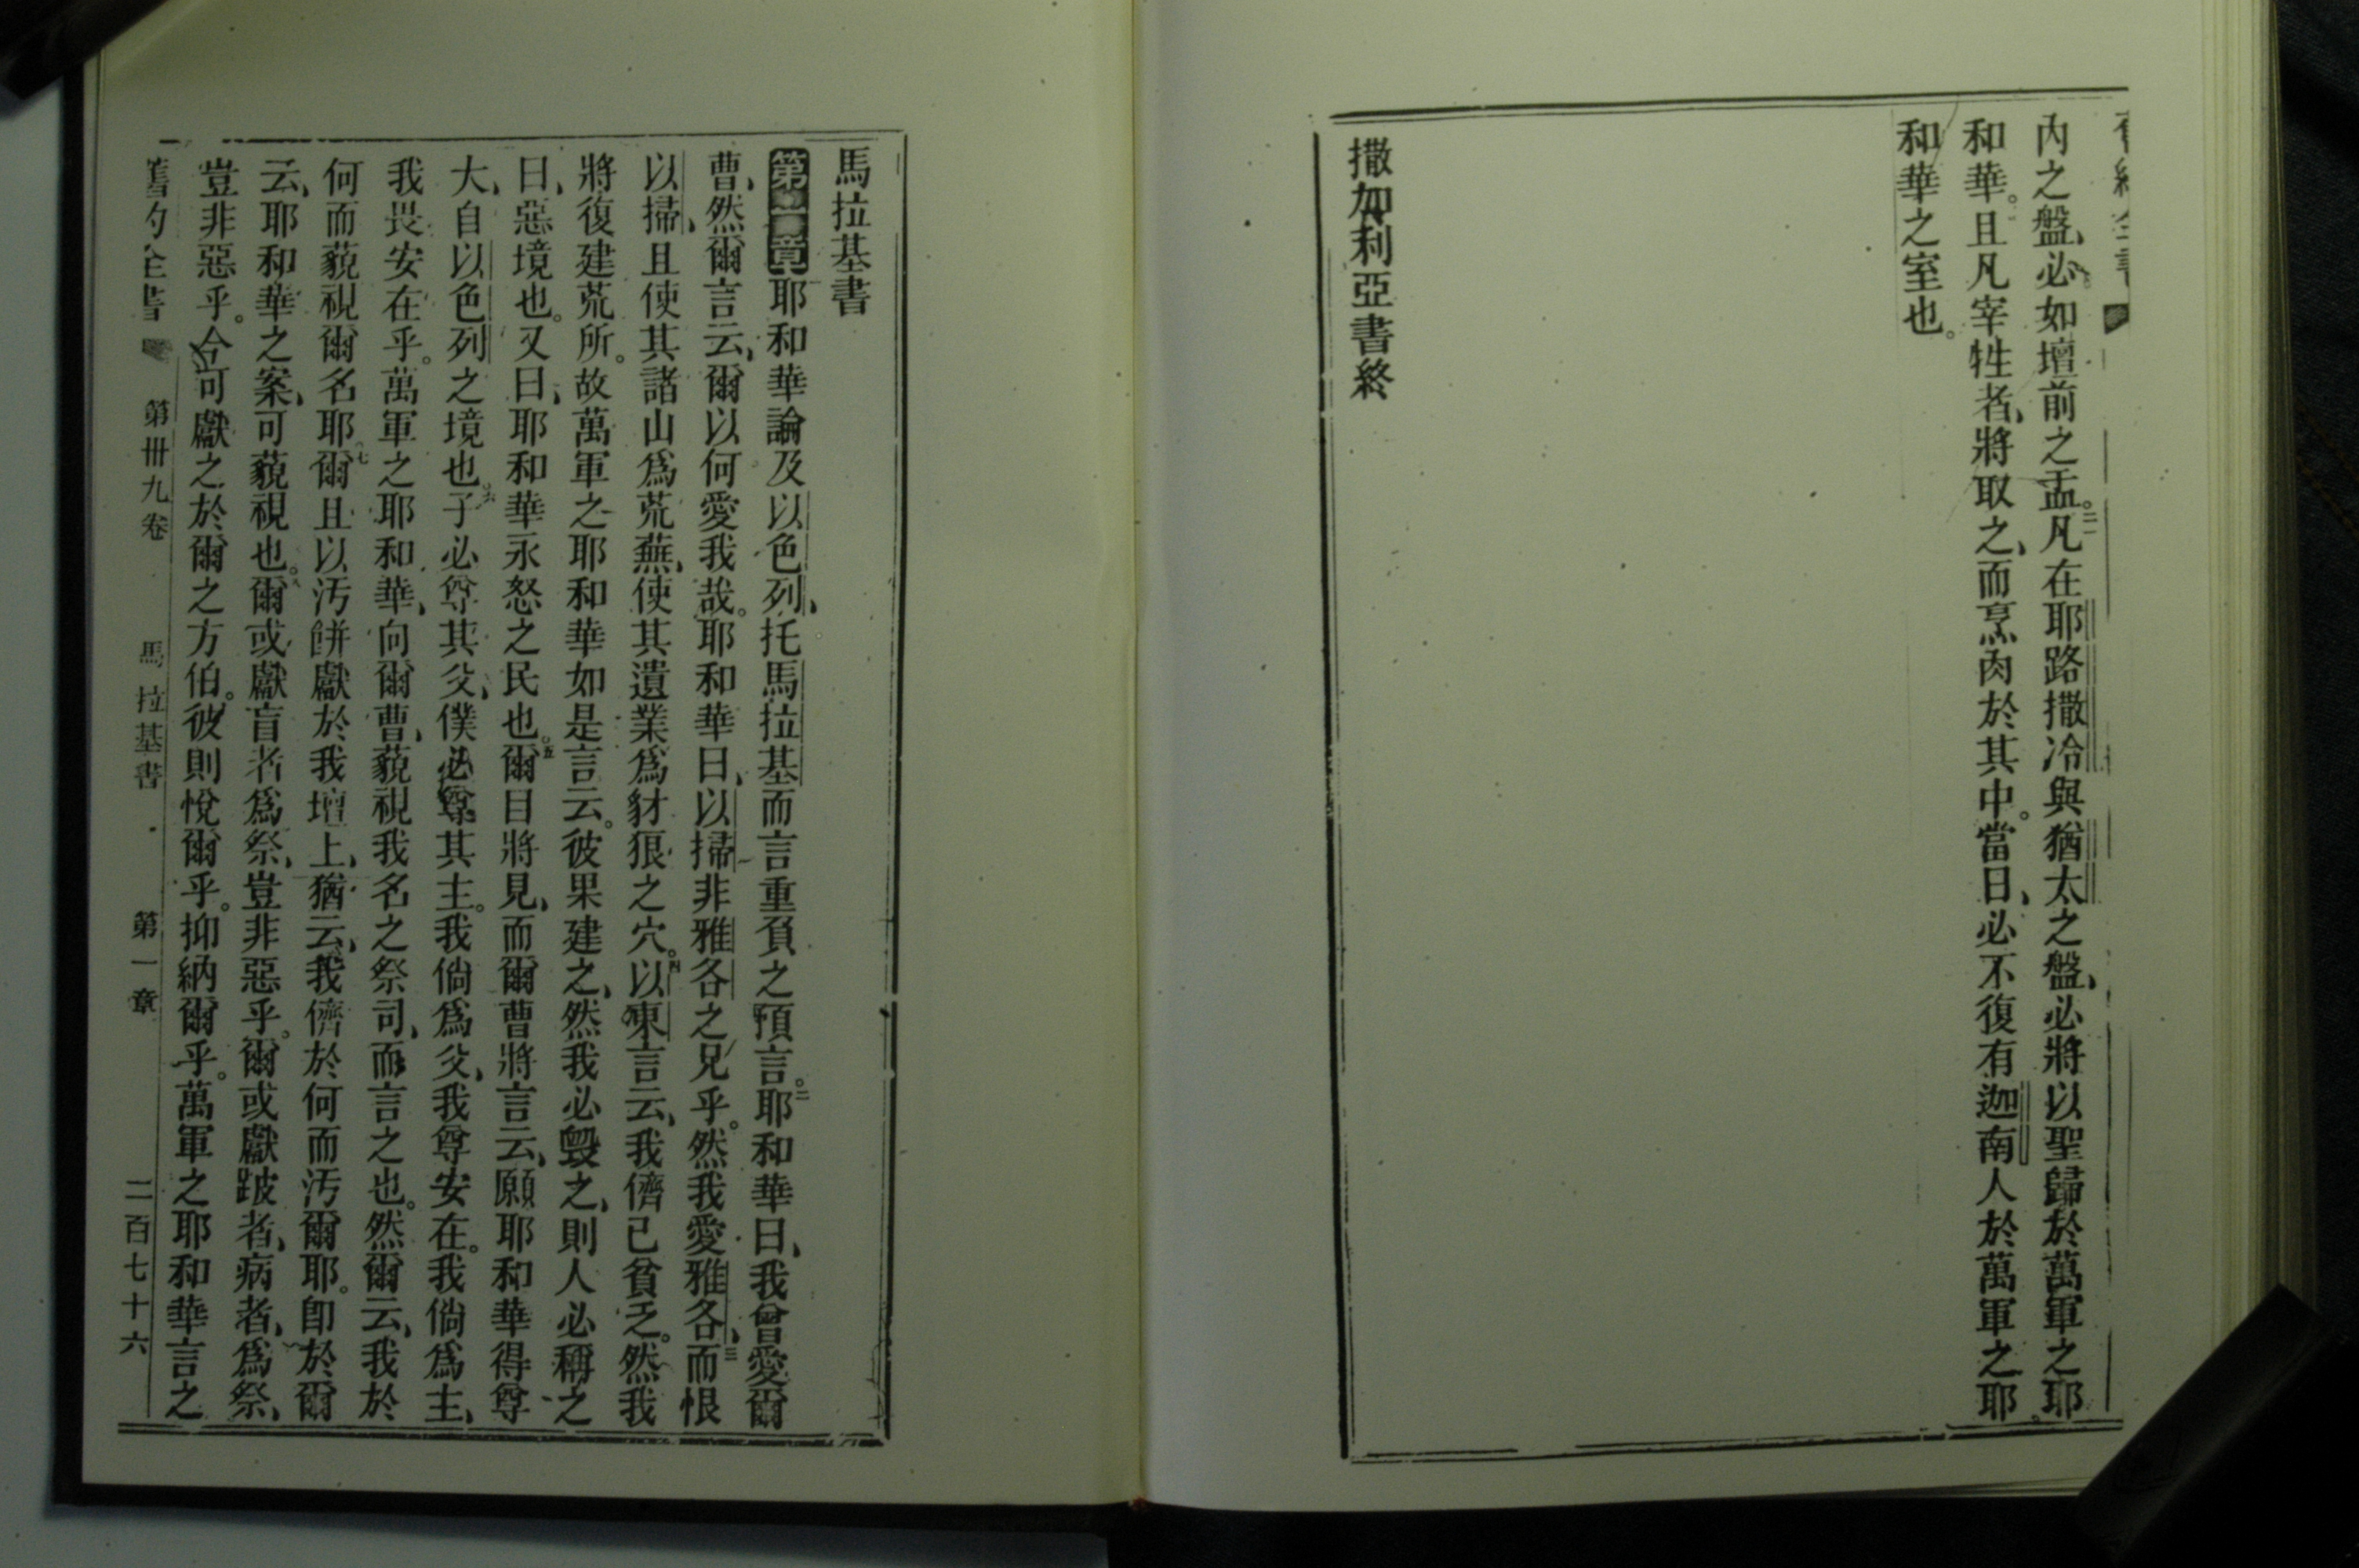 內之盤、必如壇前之盂。二一凡在耶路撒冷與猶太之盤、必將以聖歸於萬軍之耶
和華。且凡宰牲者、將取之、而烹肉於其中。當日、必不復有迦南人於萬軍之耶
和華之室也。
撒加利亞書終
馬拉基書
第一章耶和華論及以色列、托馬拉基而言重負之預言。二耶和華曰、我曾愛爾
曹、然爾言云、爾以何愛我哉。耶和華曰、以掃非雅各之兄乎。然我愛雅各、三而恨
以掃、且使其諸山爲荒蕪、使其遺業爲豺狼之穴。四以東言云、我儕已貧乏。然我
將復建荒所。故萬軍之耶和華如是言云。彼果建之、然我必毀之、則人必稱之
曰、惡境也。又曰、耶和華永怒之民也。五爾目將見、而爾曹將言云、願耶和華得尊
大、自以色列之境也。六子必尊其父、僕必尊其主。我倘爲父、我尊安在。我倘爲主、
我畏安在乎。萬軍之耶和華、向爾曹、藐視我名之祭司、而言之也。然爾云、我於
何而藐視爾名耶。七爾且以汚餅獻於我壇上、猶云、我儕於何而汚爾耶。卽於爾
云、耶和華之案、可藐視也。八爾或獻盲者爲祭、豈非惡乎。爾或獻跛者、病者、爲祭、
豈非惡乎。今可獻之於爾之方伯。彼則悅爾乎。抑納爾乎。萬軍之耶和華言之
舊約全書 第卅九卷 馬拉基書 第一章 二百七十六